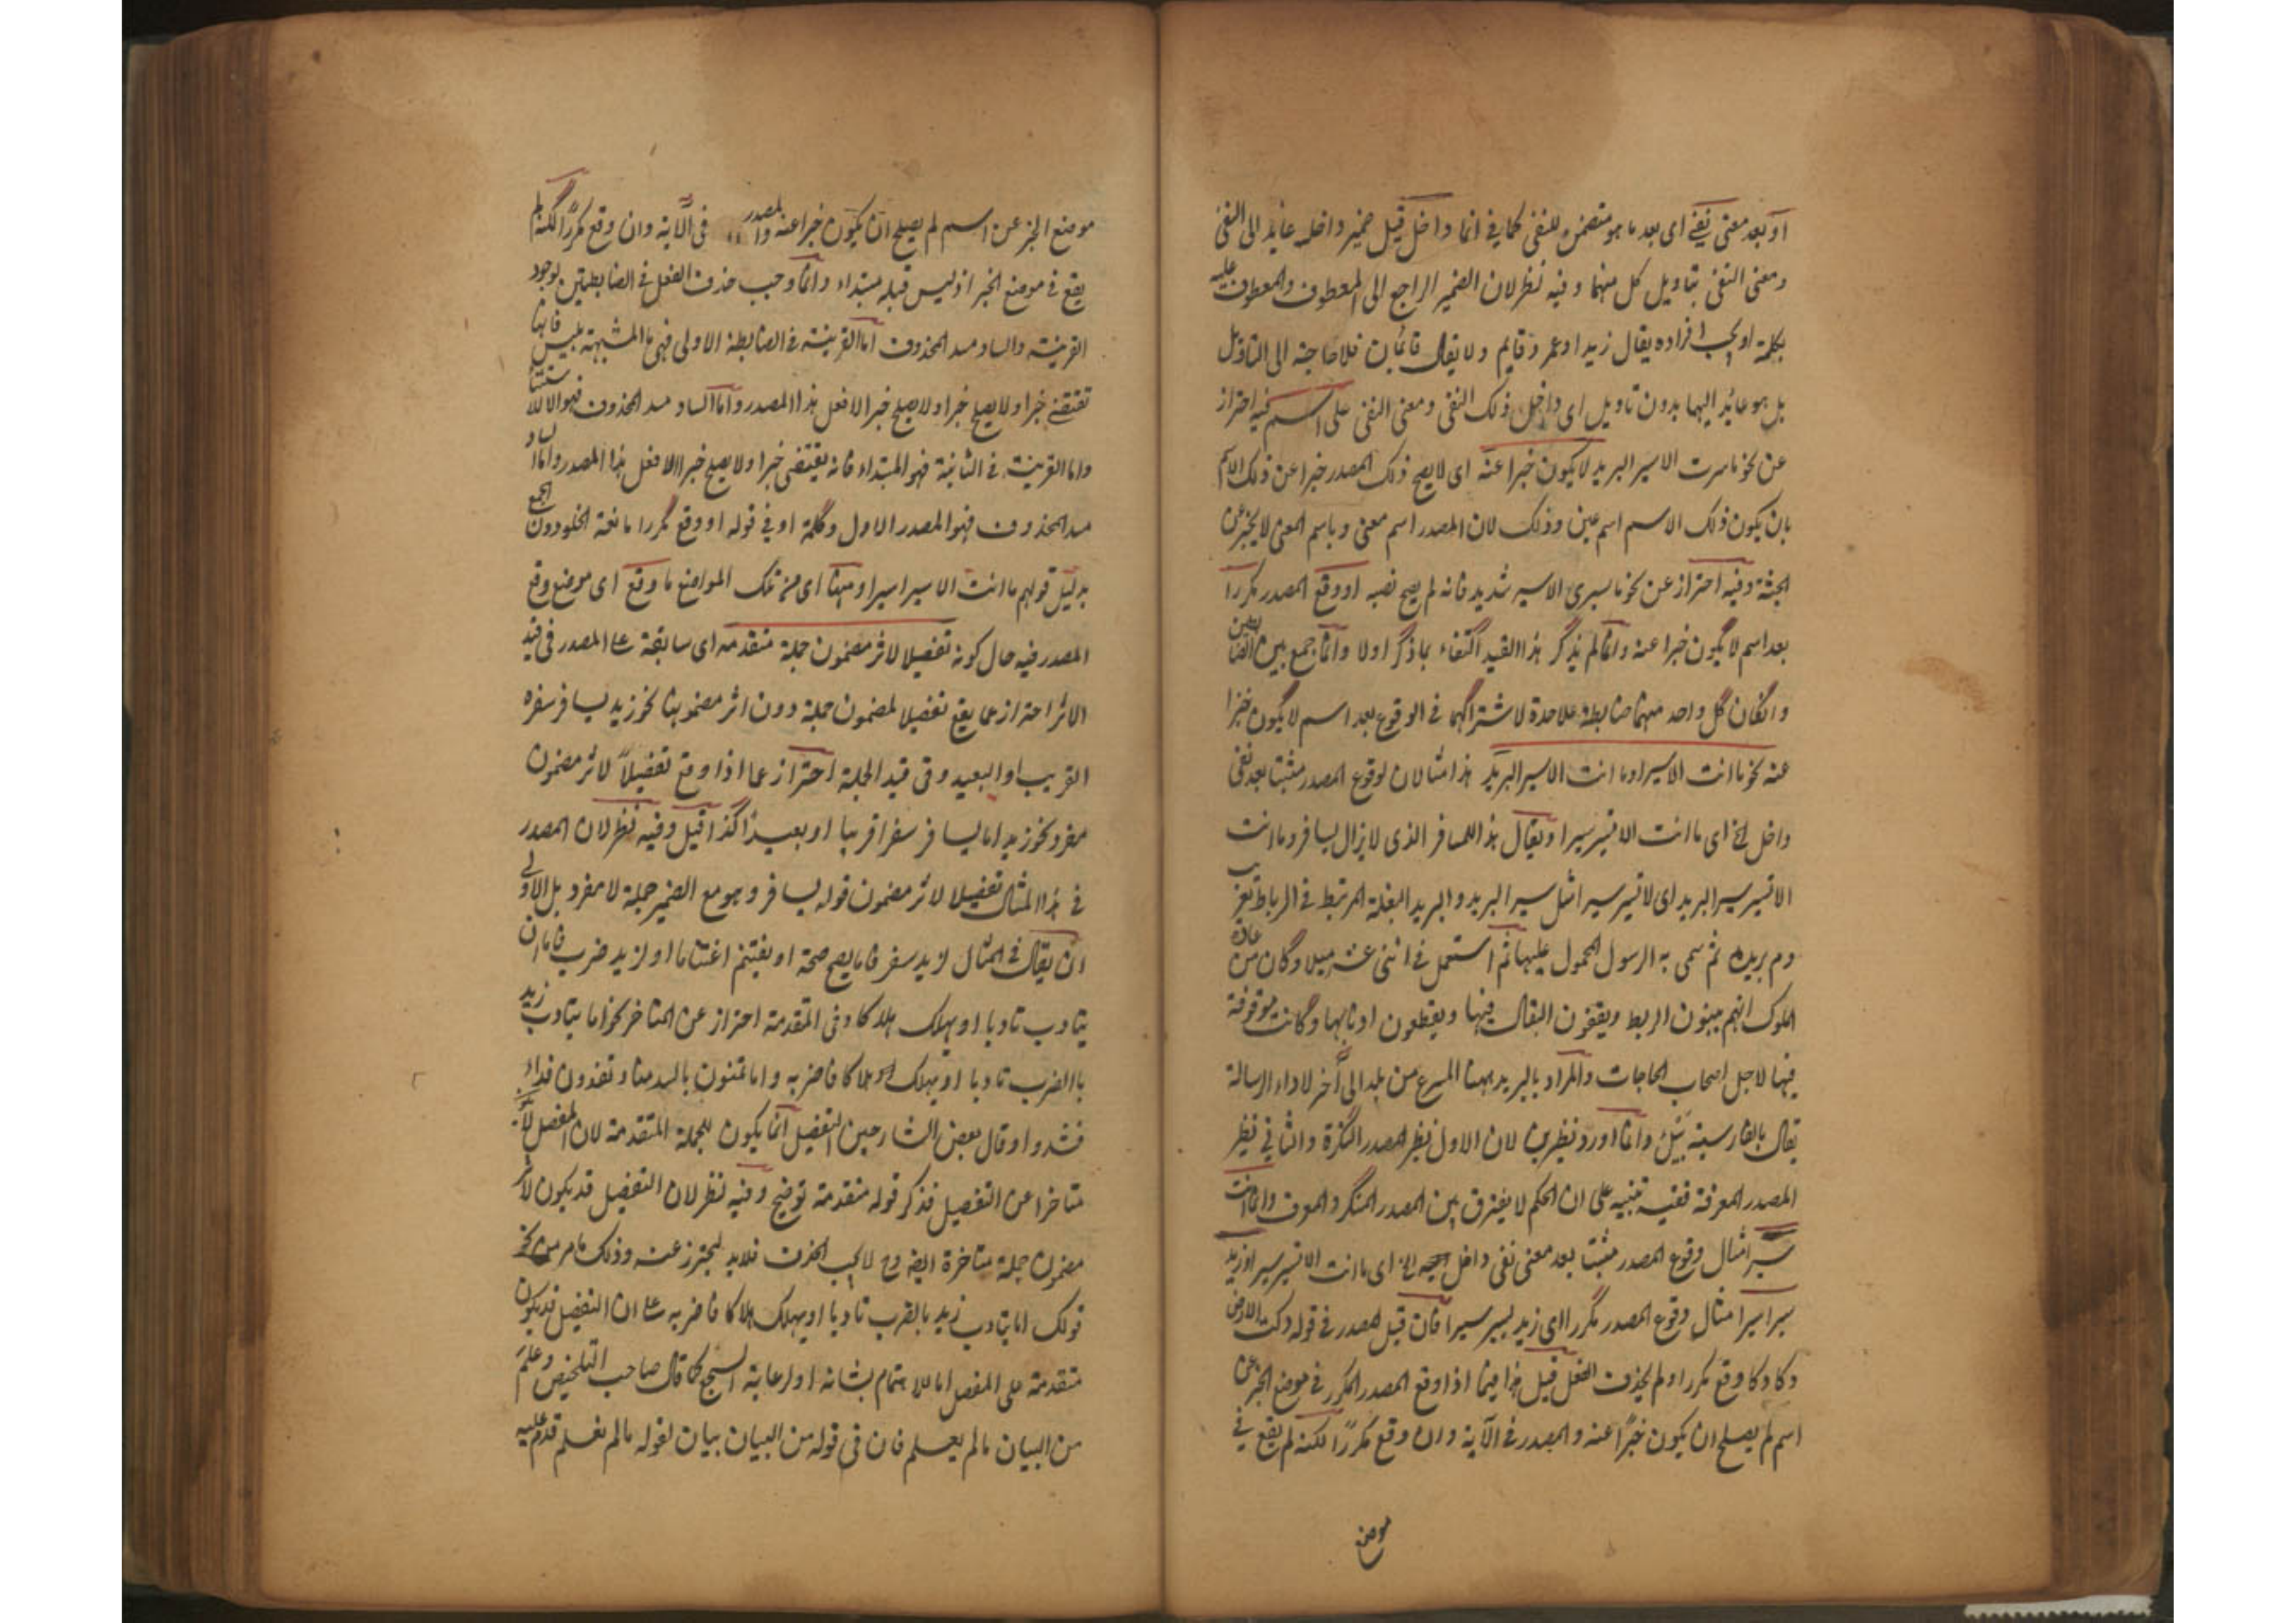 او بعد معنى نفي اى بعد ما هو متضمن للنفى كما فى انما داخل قيل ضمير داخل عايد الى النفى
ومعنى النفى بتاويل كل منهما وفيه نظر لان الضمير الراجع الى المعطوف والمعطوف عليه
بكلمة او يجب افراده يقال زيد او عمرو قايم ولا يقال قائمان فلا حاجة الى التاويل
بل هو عائد اليهما بدون تاويل اى داخل ذلك النفى ومعنى النفى على اسم فيه احتراز
عن نحو ما سرت الا سير البريد لا يكون خبرا عنه اى لا يصح ذلك المصدر خبرا عن ذلك الاسم
بان يكون ذلك الاسم اسم عين وذلك لان المصدر اسم معنى وباسم المعنى لا يخبر عن
الجثة وفيه احتراز عن نحو ما سيرى الا سير شديد فانه لم يصح نصبه او وقع المصدر مكررا
بعد اسم لا يكون خبرا عنه وانما لم يذكر هذا القيد اكتفاء بما ذكر اولا وانما جمع بين الضابطين
وان كان كل واحد منهما ضابطة علاحدة لاشتراكهما فى الوقوع بعد اسم لا يكون خبرا
عنه نحو ما انت الا سيرا وما انت الا سير البريد هذا مثالان لوقوع المصدر مثبتا بعد نفى
داخل الخ اى ما انت الا تسير سيرا ويقال هذا للمسافر الذى لا يزال يسافر وما انت
الا تسير سير البريد اى لا تسير سيرا مثل سير البريد والبريد البغلة المرتبط فى الرباط تعريب
دم بريده ثم سمى به الرسول المحمول عليها ثم استعمل فى اثنى عشر ميلا وكان من عادة
الملوك انهم يبنون الربط ويقفون البغال فيها ويقطعون اذنابها وكانت موقوفة
فيها لاجل اصحاب الحاجات والمراد بالبريد ههنا المسرع من بلد الى آخر لاداء الرسالة
يقال بالفارسية وانما اورد نظيرين لان الاول نظير المصدر النكرة والثانى نظير
المصدر المعرفة ففيه تنبيه على ان الحكم لا يفترق بين المصدر المنكر والمعرف وانما انت
سيرا مثال وقوع المصدر مثبتا بعد معنى نفى داخل الخ اى ما انت الا تسير سيرا وزيد
سيرا سيرا مثال وقوع المصدر مكررا اى زيد يسير سيرا فان قيل المصدر فى قوله دكت الارض
دكا دكا وقع مكررا ولم يحذف الفعل قيل هذا فيما اذا وقع المصدر المكرر فى موضع الخبر عن
اسم لم يصلح ان يكون خبرا عنه والمصدر فى الآية وان وقع مكررا لكنه لم يقع فى
موضع
موضع الخبر عن اسم لم يصلح ان يكون خبرا عنه والمصدر فى الآية وان وقع مكررا لكنه لم
يقع فى موضع الخبر اذ ليس قبله مبتداء وانما وجب حذف الفعل فى الضابطتين لوجود
القرينة والساد مسد المحذوف اما القرينة فى الضابطة الاولى فهى ما المشبهة بليس فانها
تقتضى خبرا ولا يصلح خبرا ولا يصلح خبرا الا فعل هذا المصدر واما الساد مسد المحذوف فهو الا للاستثناء
واما القرينة فى الثانية فهو المبتداء فانه يقتضى خبرا ولا يصلح خبرا الا فعل هذا المصدر واما الساد
مسد المحذوف فهو المصدر الاول وكلمة او فى قوله او وقع مكررا مانعة الخلو دون الجمع
بدليل قولهم ما انت الا سيرا سيرا ومنها اى من تلك المواضع ما وقع اى موضع وقع
المصدر فيه حال كونه تفصيلا لاثر مضمون جملة متقدمة اى سابقة على المصدر فى قيد
الاثر احتراز عما يقع تفصيلا لمضمون جملة دون اثر مضمونها نحو زيد يسافر سفره
القريب او البعيد وفى قيد الجملة احتراز عما اذا وقع تفصيلا لاثر مضمون
مفرد نحو زيد اما يسافر سفرا قريبا او بعيدا كذا قيل وفيه نظر لان المصدر
فى هذا المثال تفصيلا لاثر مضمون قوله يسافر وهو مع الضمير جملة لا مفرد بل الاولى
ان يقال فى المثال لزيد سفر فاما يصح صحة او يغتنم اغتناما او لزيد ضرب فاما ان
يتادب تادبا او يهلك هلاكا وفى المتقدمة احتراز عن المتاخر نحو اما يتادب زيد
بالضرب تادبا او يهلك هلاكا فاضربه واما تمنون بالسر منا وتفدون فداء
فشدوا وقال بعض الشارحين التفصيل انما يكون للجملة المتقدمة لان المفصل لا يكون
متاخرا عن التفصيل فذكر قوله متقدمة توضيح وفيه نظر لان التفصيل قد يكون لاثر
مضمون جملة متاخرة ايضا وح لا يجب الحذف فلابد ليحترز عنه وذلك ما مر من نحو
قولك اما يتادب زيد بالضرب تادبا او يهلك هلاكا فاضربه على ان التفصيل قد يكون
متقدمة على المفصل اما للاهتمام بشانه او لرعاية السجع كما قال صاحب التلخيص وعلم
من البيان ما لم يعلم فان فى قوله من البيان بيان لقوله ما لم نعلم قدم عليه